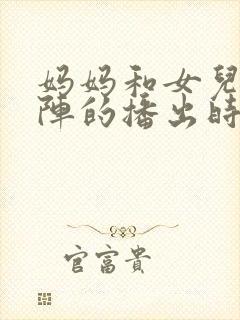 妈妈和女兒
陣的播出時
官富貴